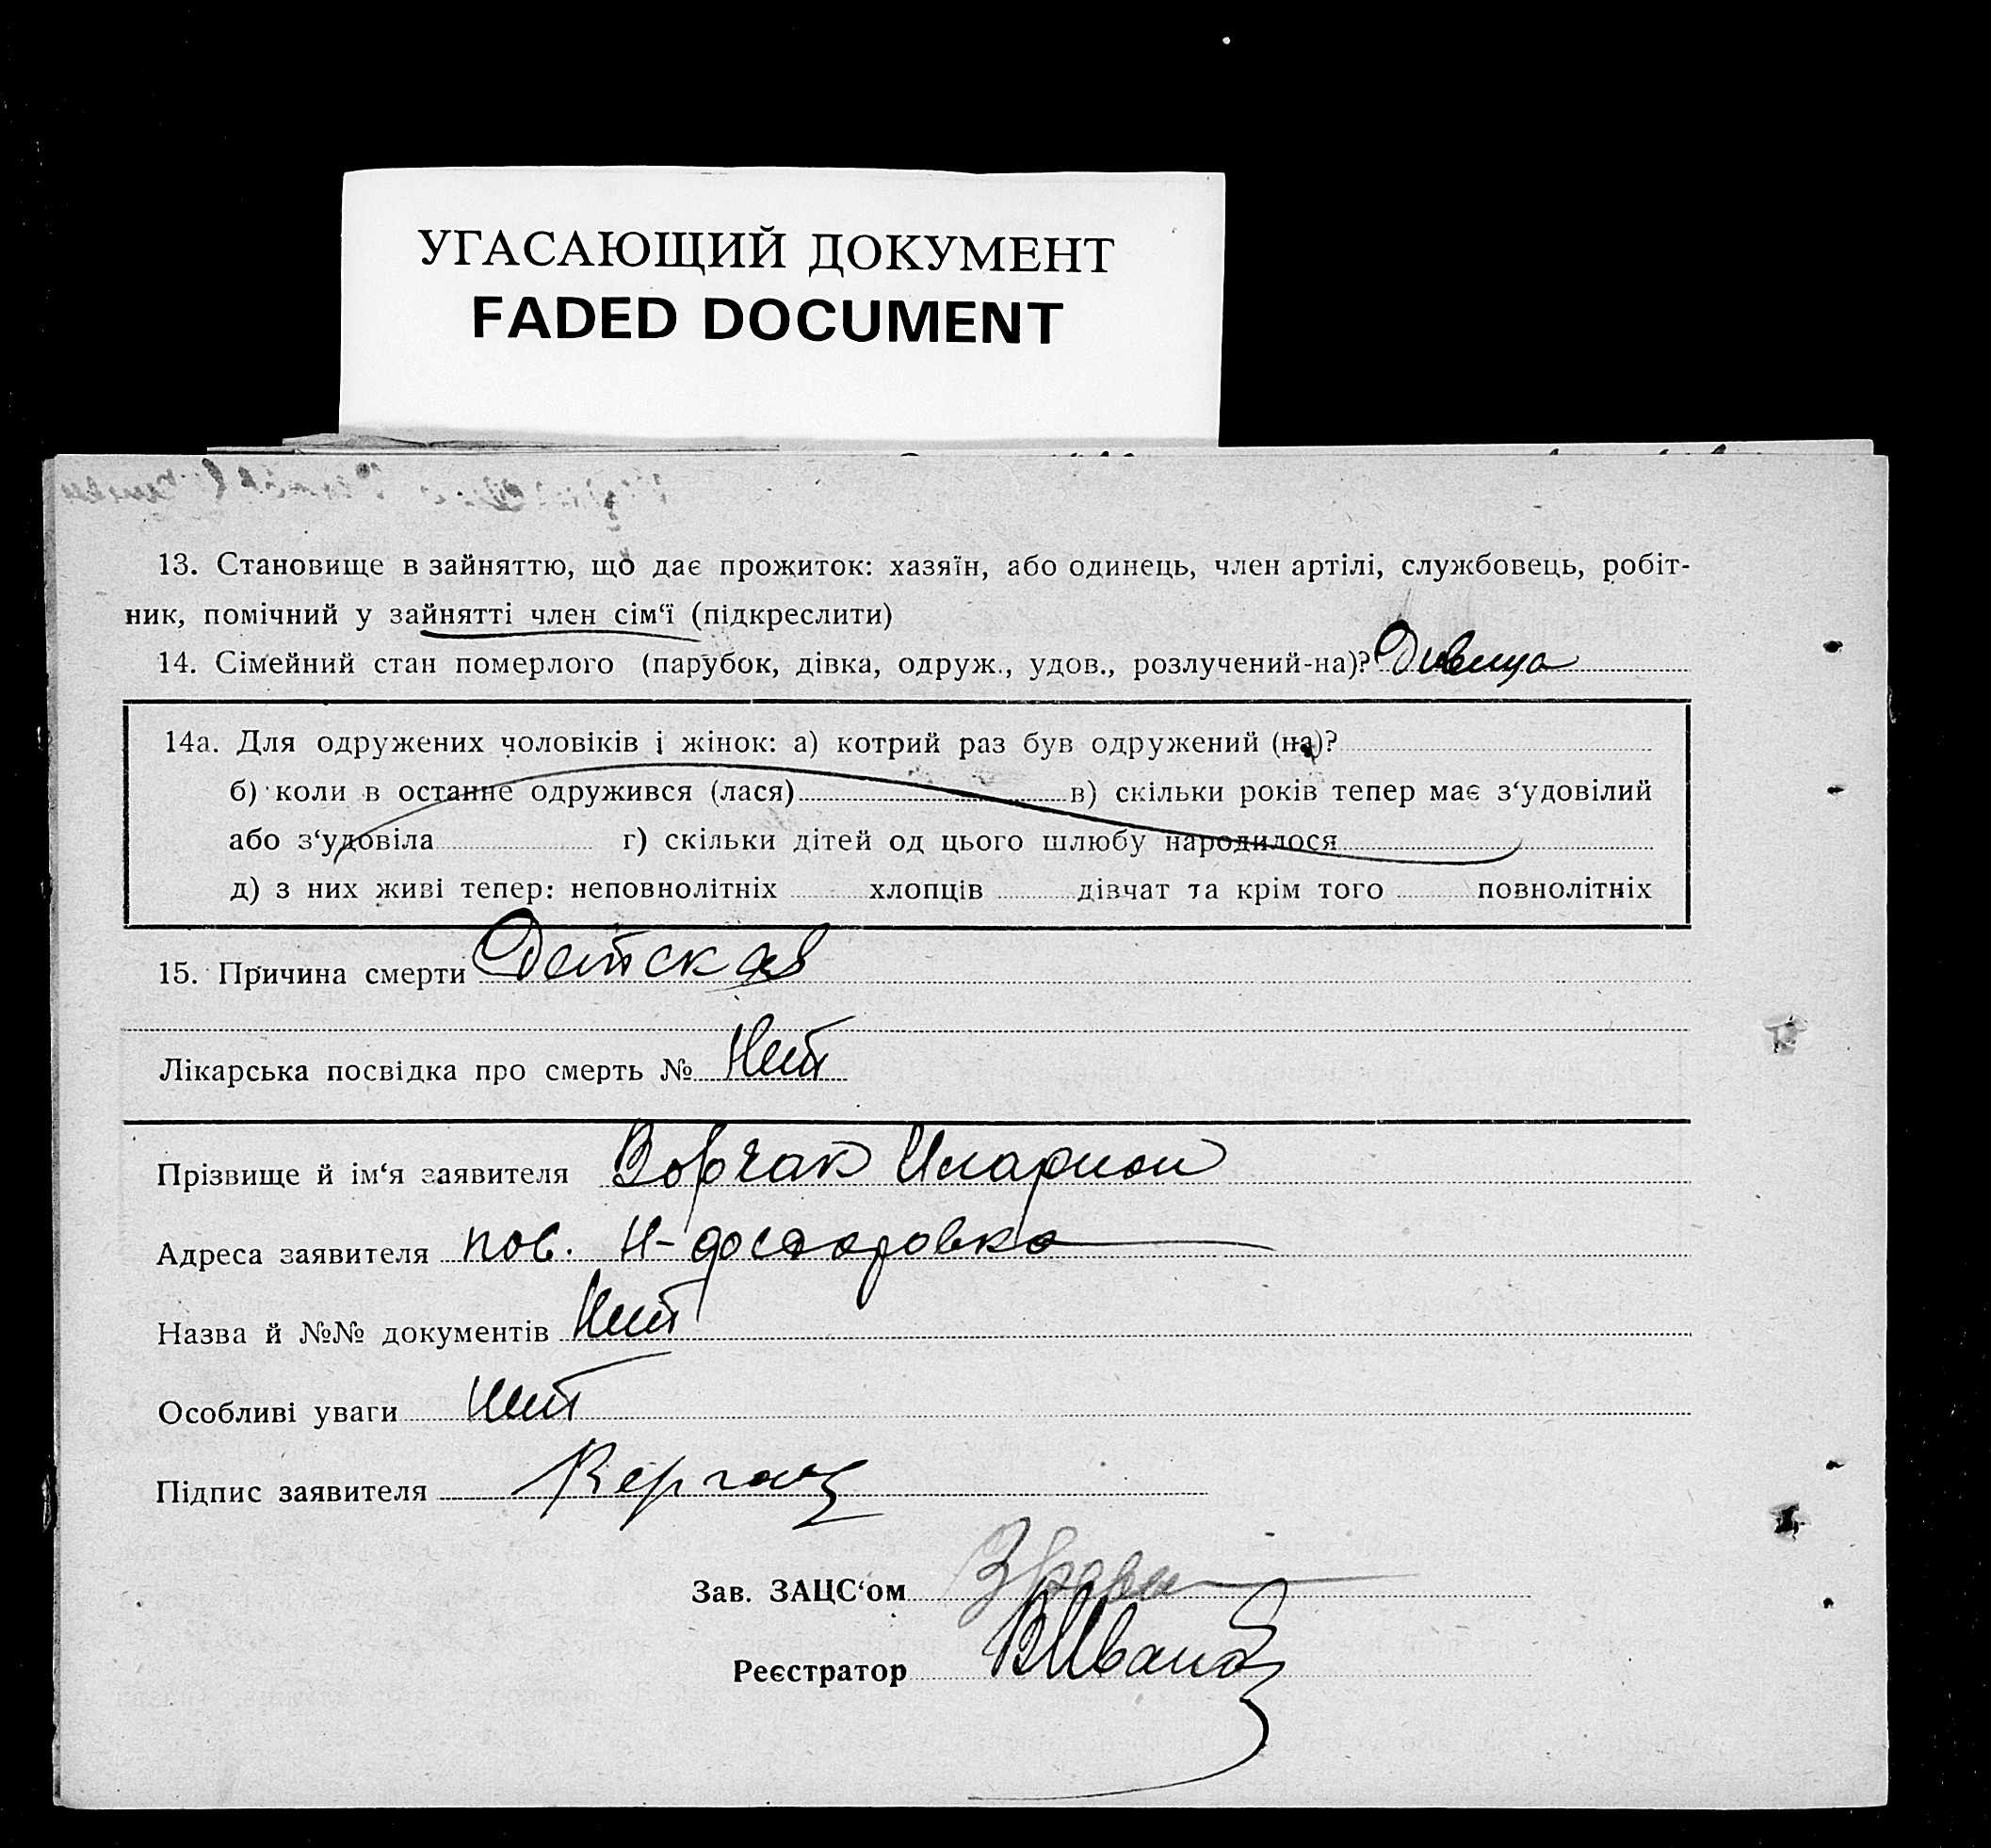 УГАСАЮЩИЙ ДОКУМЕНТ
FADED DOCUMENT
13. Становище в зайняттю, що дає прожиток: хазяїн, або одинець, член артілі, службовець, робіт-
ник, помічний у зайнятті член сім‘ї (підкреслити)
14. Сімейний стан померлого (парубок, дівка, одруж., удов., розлучений-на)? Дивица
14а. Для одружених чоловіків і жінок: а) котрий раз був одружений (на)?
б) коли в останнє одружився (лася) в) скільки років тепер має з‘удовілий
або з‘удовіла г) скільки дітей од цього шлюбу народилося
д) з них живі тепер: неповнолітніх хлопців дівчат та крім того повнолітніх
15. Причина смерти Детская
Лікарська посвідка про смерть № Нит
Прізвище й ім‘я заявителя Иларион
Адреса заявителя пос. Н-
Назва й №№ документів Нит
Особливі уваги Нит
Підпис заявителя
Зав. ЗАЦС‘ом
Реєстратор